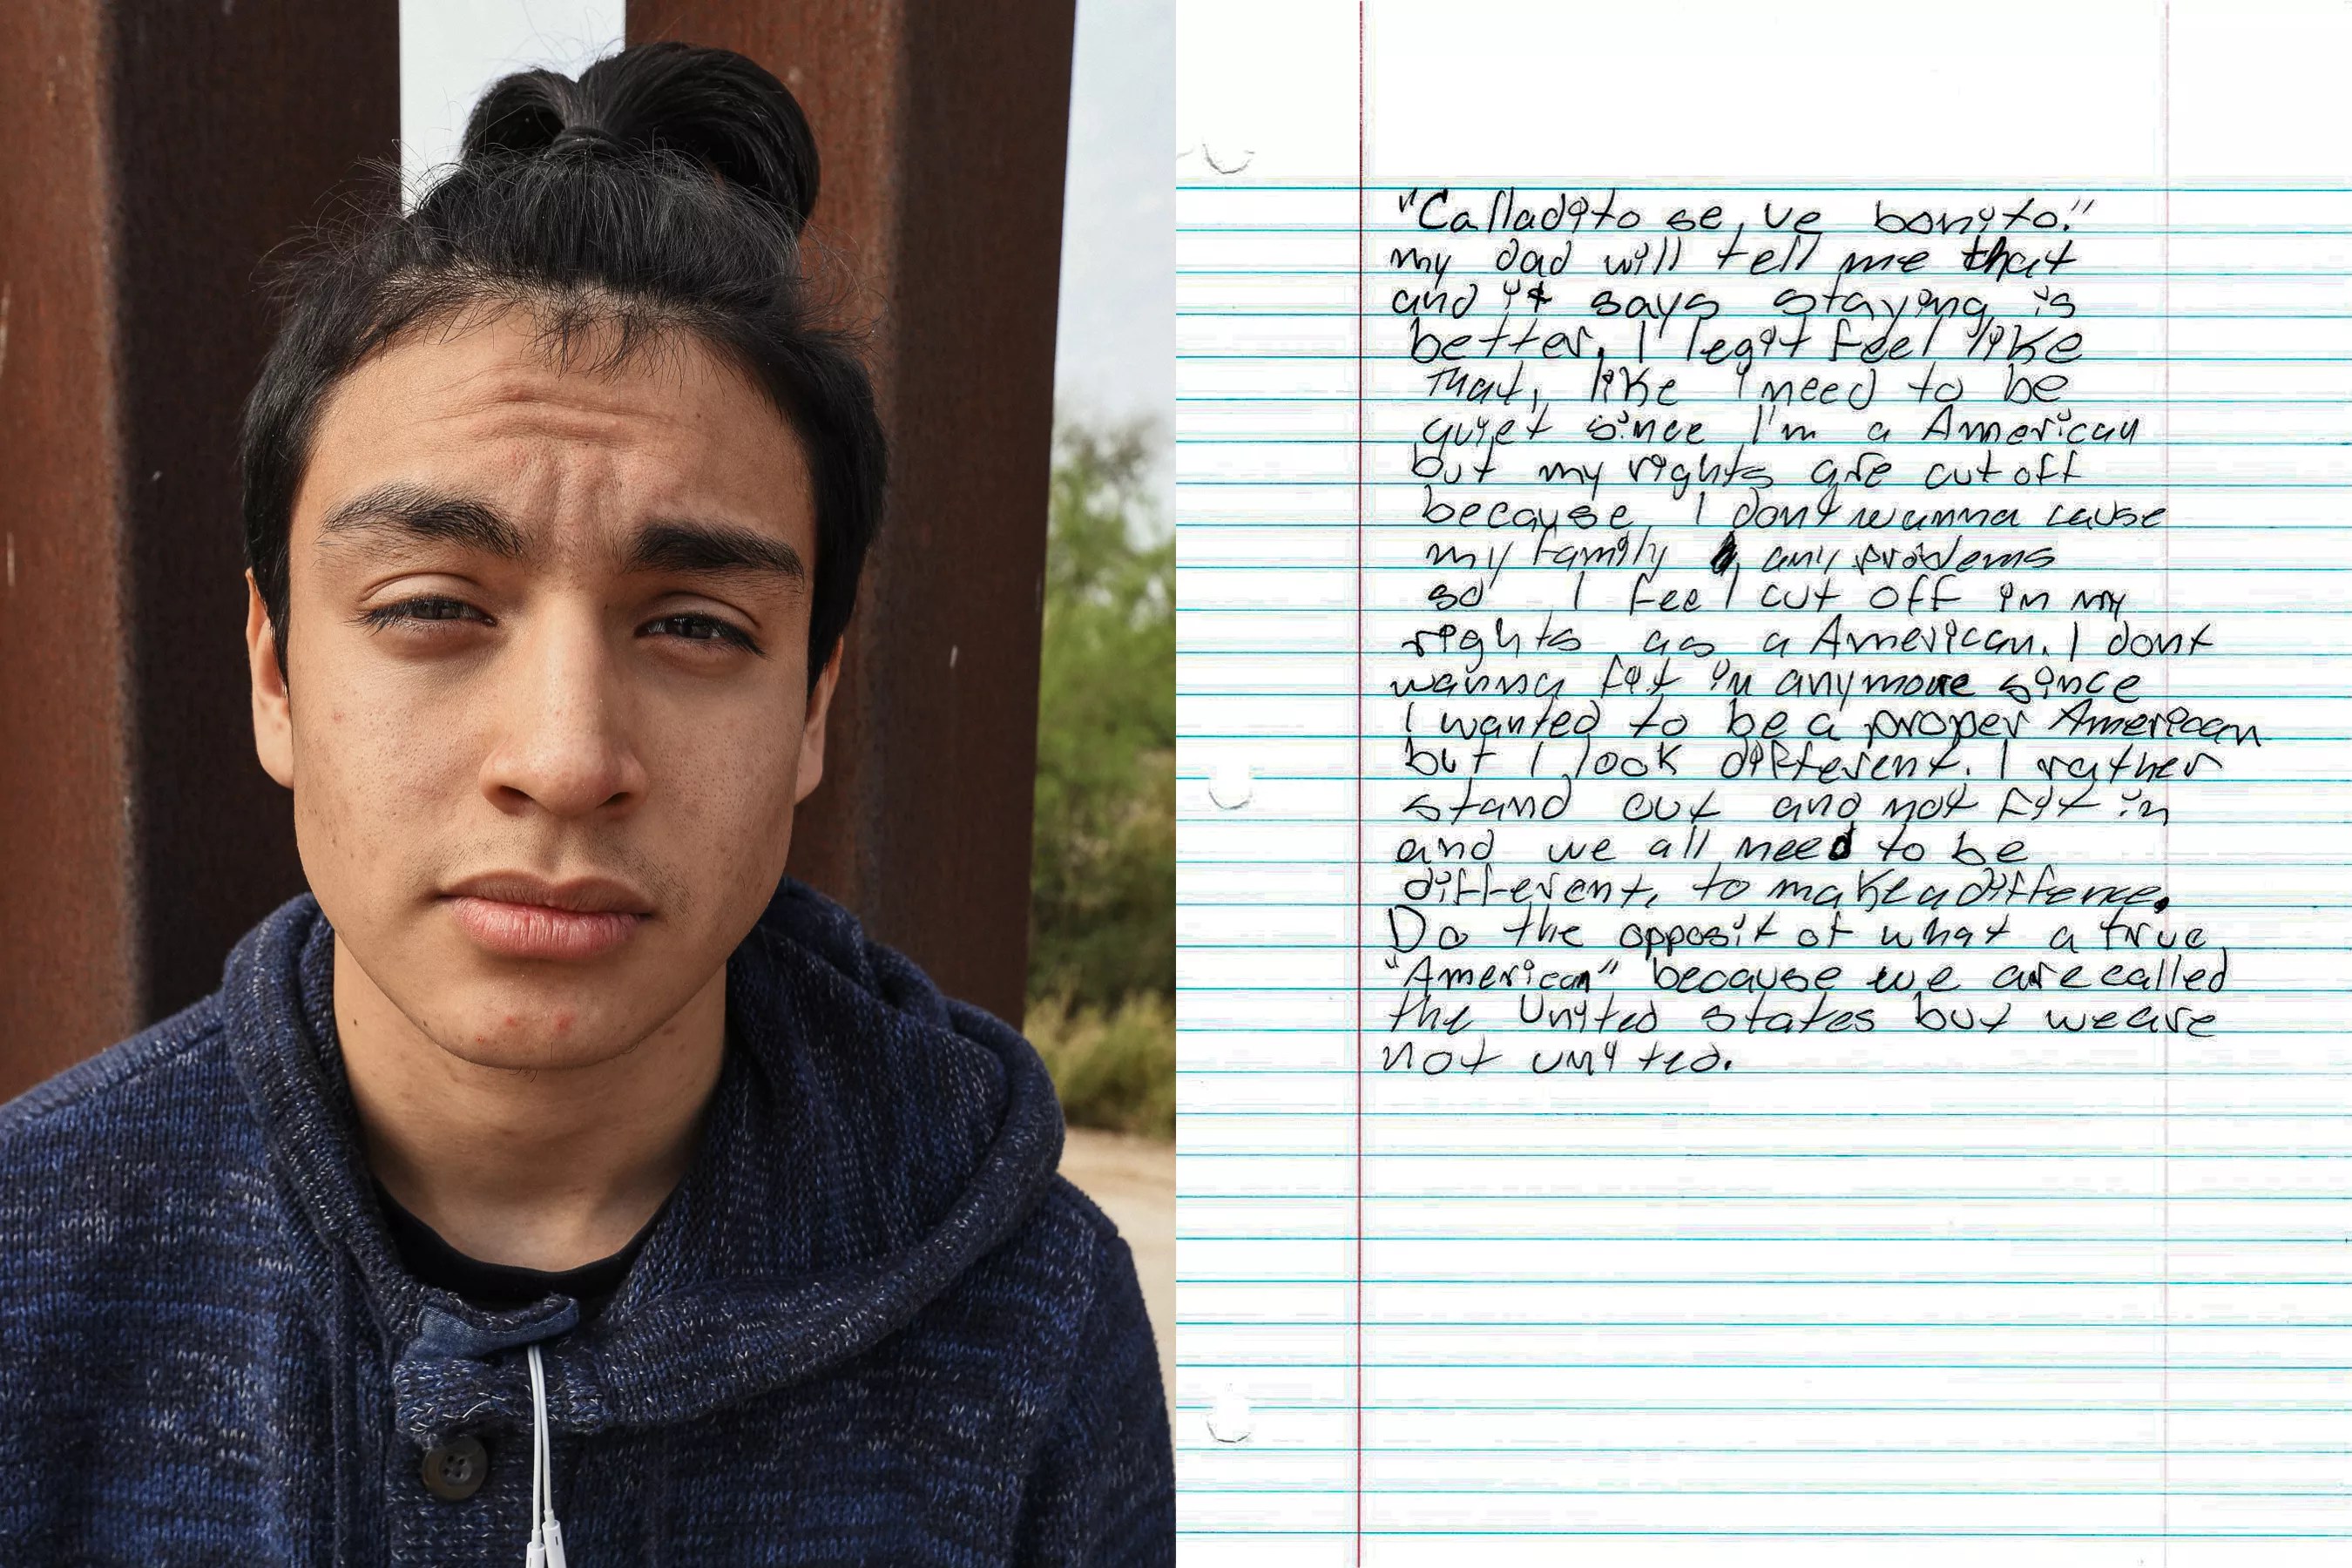 "Calladito se ve bonito."
my dad will tell me that
and it says staying is
better, I legit feel like
that, like I need to be
quiet since I'm a American
but my rights are cut off
because I dont wanna cause
my family any problems
so I feel cut off in my
rights as a American. I dont
wanna fit in anymore since
I wanted to be a proper American
but I look different. I rather
stand out and not fit in
and we all need to be
different, to make a differnce.
Do the opposit of what a true
"American" because we are called
the United states but we are
not united.